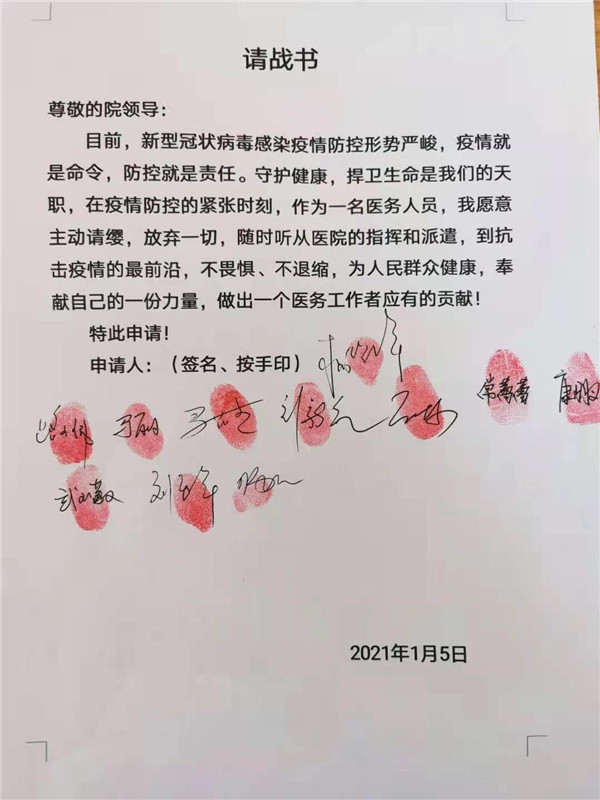 请战书
尊敬的院领导：
目前，新型冠状病毒感染疫情防控形势严峻，疫情就
是命令，防控就是责任。守护健康，捍卫生命是我们的天
职，在疫情防控的紧张时刻，作为一名医务人员，我愿意
主动请缨，放弃一切，随时听从医院的指挥和派遣，到抗
击疫情的最前沿，不畏惧、不退缩，为人民群众健康，奉
献自己的一份力量，做出一个医务工作者应有的贡献！
特此申请！
申请人：（签名、按手印）
2021年1月5日